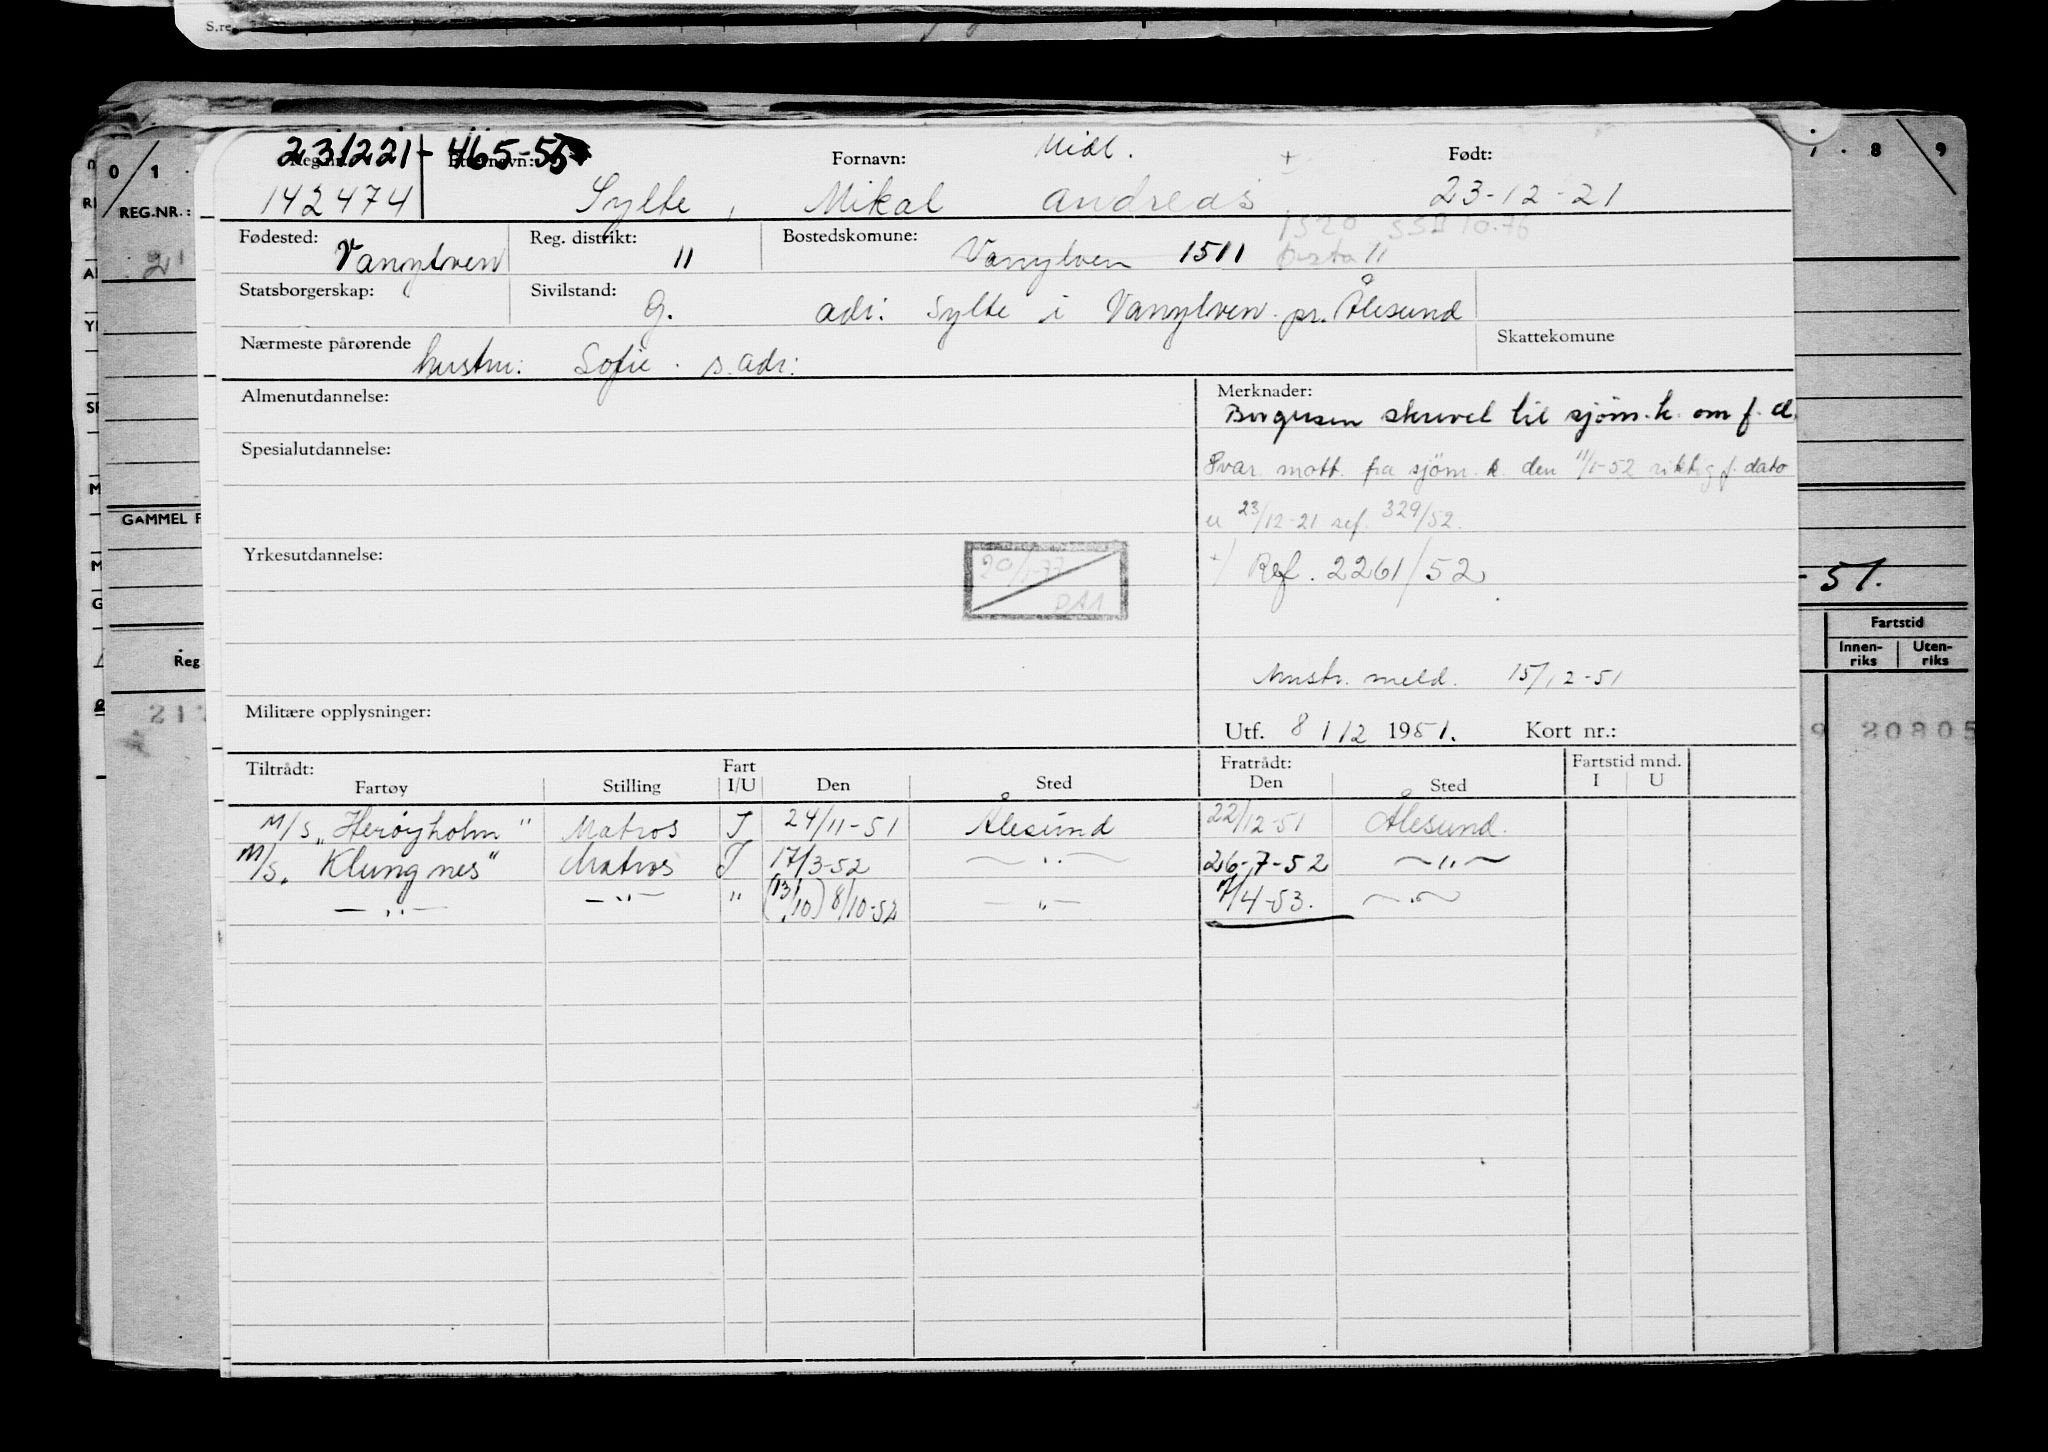 S.re
0 / 1 .
REG.NR.:
GAMMEL F
Reg
. 8 \ 9
- 51.
Fartstid
Innen-riks Uten-riks
20805
231221 - 465-55
Reg.nr. Etternavn: Fornavn: Midl. + Født:
142474 Sylte, Mikal Andreas 23-12-21
1520 SSB 10.76
Fødested: Vanylven Reg. distrikt: 11 Bostedskomune: Vanylven 1511 Ørsta 11
Statsborgerskap: Sivilstand: G. adr. Sylte i Vanylven pr. Ålesund
Nærmeste pårørende hustru: Sofie. s. adr: Skattekomune
Almenutdannelse:
Spesialutdannelse:
Yrkesutdannelse:
20/1-77
DA1
Militære opplysninger:
Merknader:
Borgersen skrevet til sjøm. k. om f. d.
Svar mott. fra sjøm. k. den 11/1-52 riktig f. dato
er 23/12-21 ref. 329/52.
+/ Ref. 2261/52.
Mnstr. meld. 15/12-51
Utf. 8 / 12 1951. Kort nr.:
Tiltrådt: Fart Fratrådt: Fartstid mnd.
Fartøy Stilling I/U Den Sted Den Sted I U
M/S "Herøyholm" Matros I 24/11-51 Ålesund 22/12-51 Ålesund.
M/S. Klungnes" Matros I 17/3-52 — " — 26-7-52 — " —
— " — — " — " (13/10) 8/10-52 — " — 7/4-53. — " —